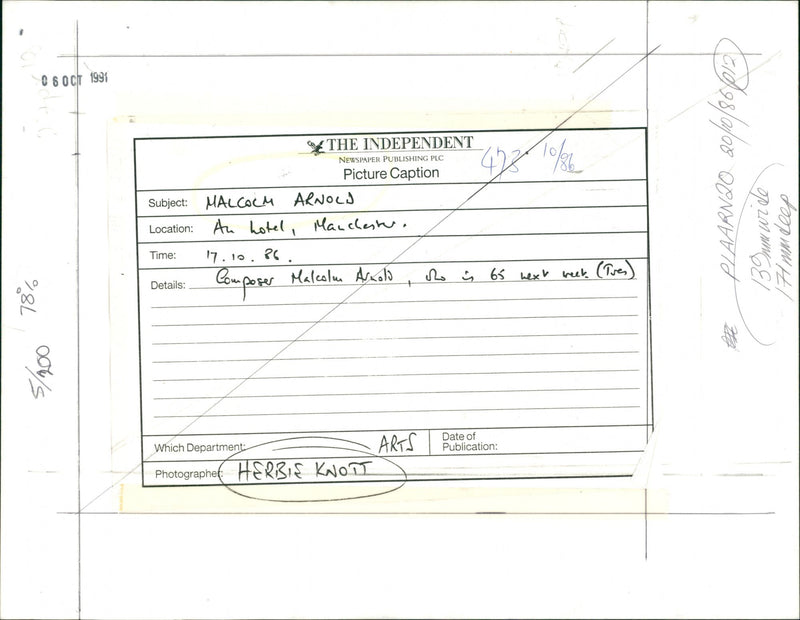 06 OCT 1991
THE INDEPENDENT
NEWSPAPER PUBLISHING PLC
Picture Caption
473 10/86
Subject: MALCOLM ARNOLD
Location: An hotel, Manchester.
Time: 17.10.86.
Details: Composer Malcolm Arnold, who is 65 next week (Tues)
Which Department: ARTS
Date of
Publication:
Photographer: HERBIE KNOTT
5/200 78%
P1AARN20 20/10/86 p12
139mm wide
171mm deep